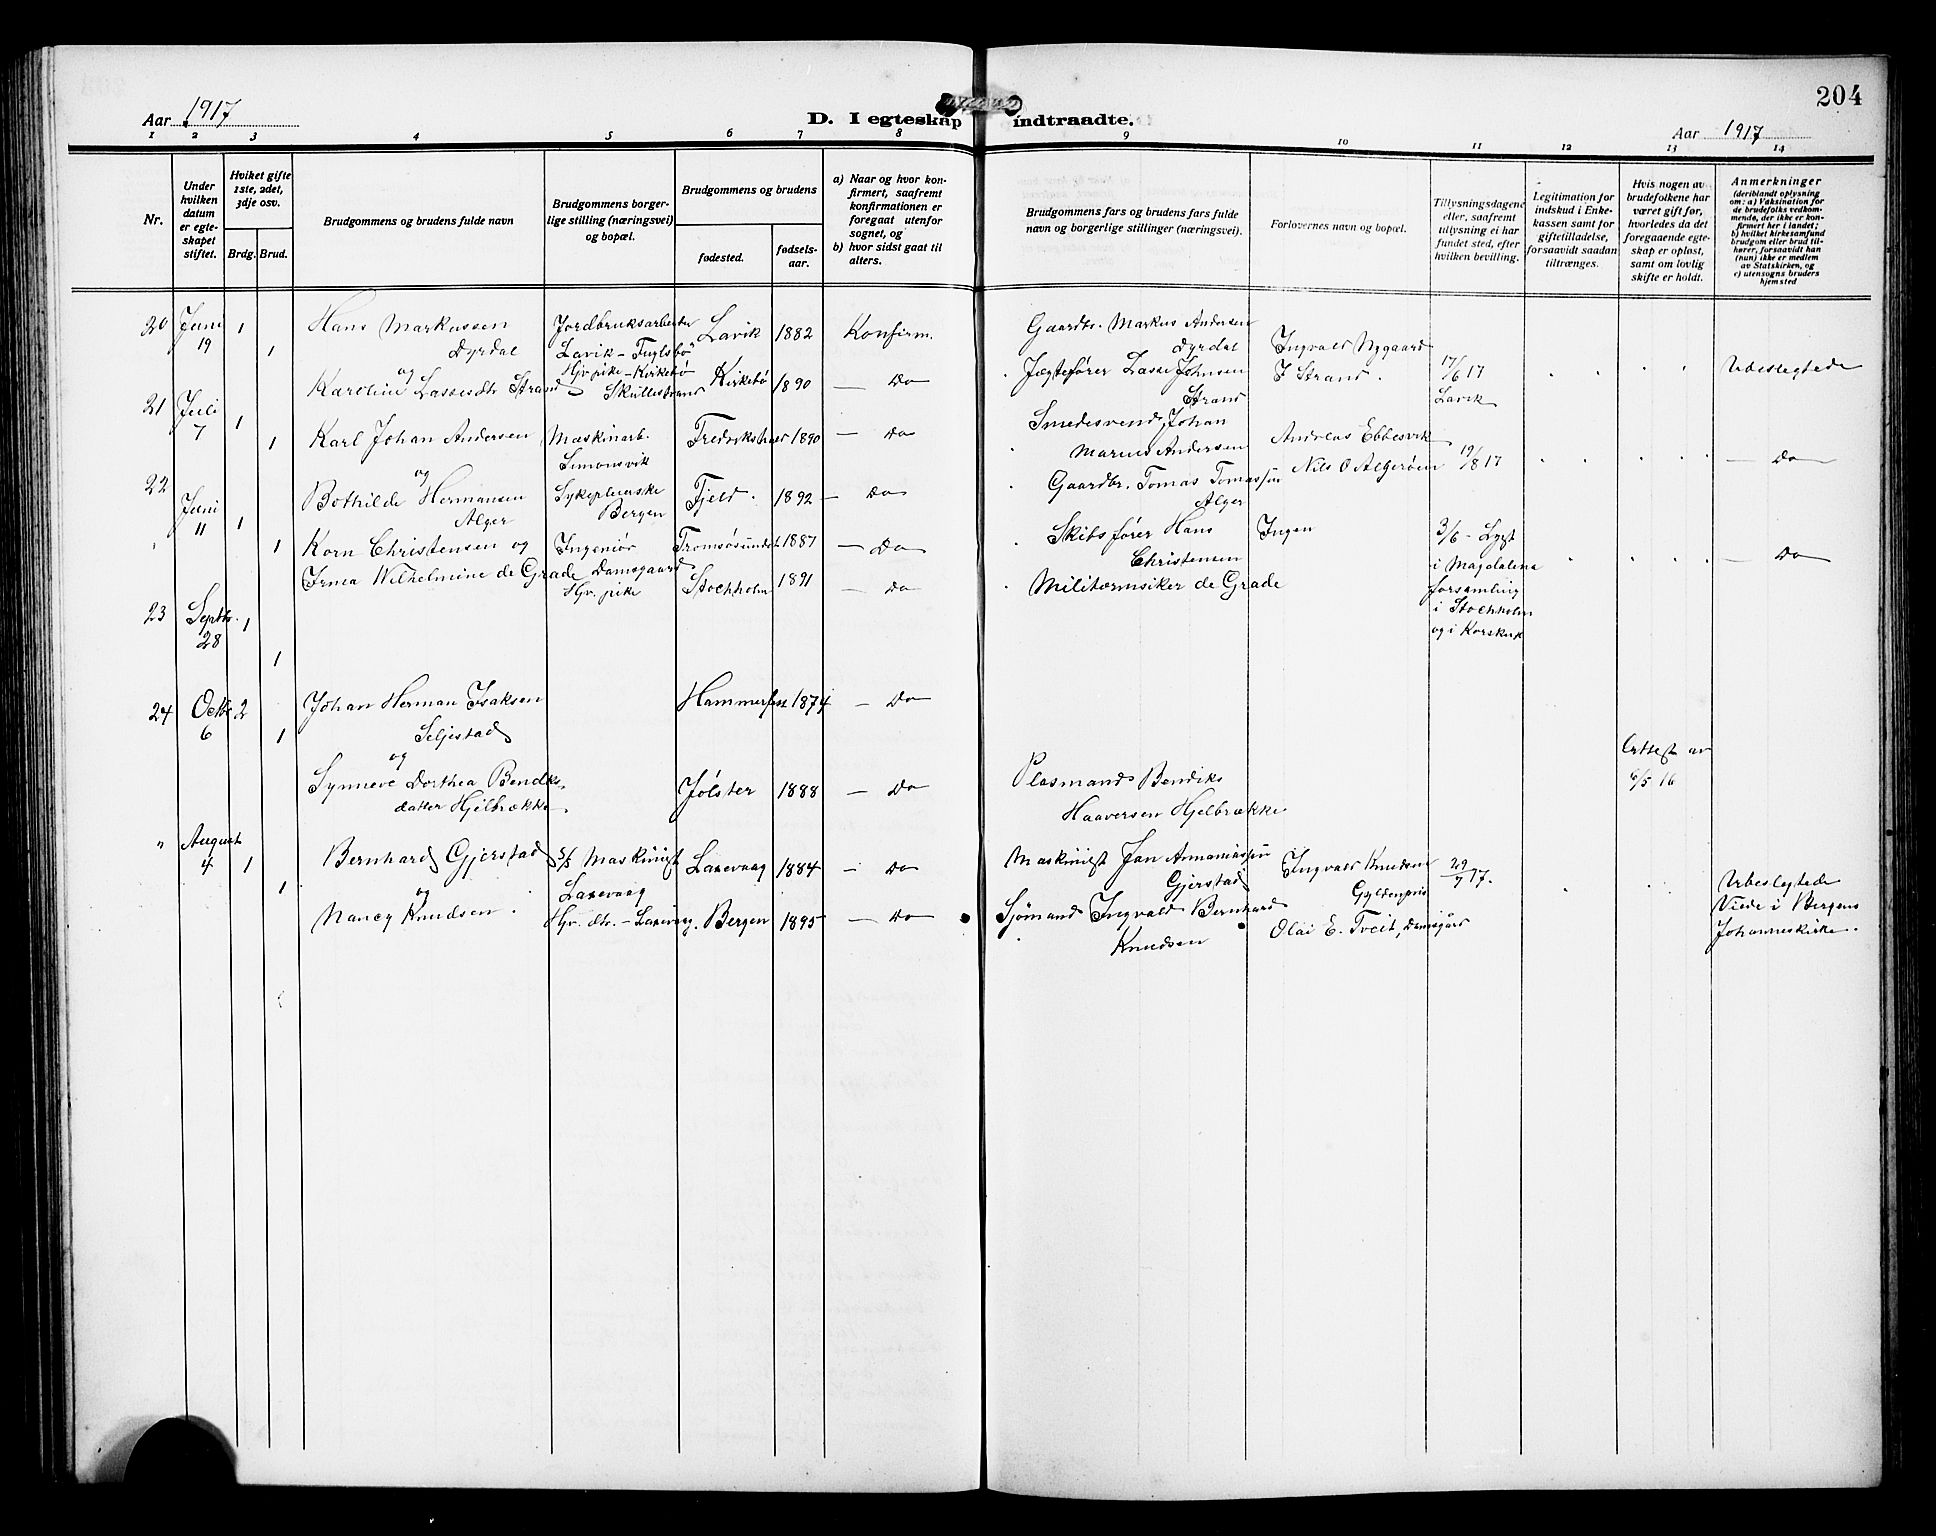 204
Aar 1917
D. I egteskap indtraadte.
Aar 1917
1 2 3 4 5 6 7 8 9 10 11 12 13 14
Nr.
Under
hvilken
datum
er egte-
skapet
stiftet.
Hviket gifte
1ste, 2det,
3dje osv.
Brdg. Brud.
Brudgommens og brudens fulde navn
Brudgommens borger-
lige stilling (næringsvei)
og bopæl.
Brudgommens og brudens
fødested.
fødsels-
aar.
a) Naar og hvor kon-
firmert, saafremt
konfirmationen er
foregaat utenfor
sognet, og
b) hvor sidst gaat til
alters.
Brudgommens fars og brudens fars fulde
navn og borgerlige stillinger (næringsvei).
Forlovernes navn og bopæl.
Tillysningsdagene
eller, saafremt
tillysning ei har
fundet sted, efter
hvilken bevilling.
Legitimation for
indskud i Enke-
kassen samt for
giftetilladelse,
forsaavidt saadan
tiltrænges.
Hvis nogen av
brudefolkene har
været gift før,
hvorledes da det
foregaaende egte-
skap er opløst,
samt om lovlig
skifte er holdt.
Anmerkninger
(deriblandt oplysning
om: a) Vaksination for
de brudefolks vedkom-
mende, der ikke er kon-
firmert her i landet;
b) hvilket kirkesamfund
brudgom eller brud til-
hører, forsaavidt han
(hun) ikke er medlem
av Statskirken, og
c) utensogns bruders
hjemsted
20 Juni 19 1 1
Hans Markussen
Dyrdal
og
Karoline Lassesdtr Strand
Jordbruksarbeiter
Lavik - Fuglsbø
Hjv. pike - Kirkebø
Skullestrand
Lavik 1882 Konfirm.
Kirkebø 1890 — Do
Gaardbr. Markus Andersen
Dyrdal
Jægtefører Lasse Johnsen
Strand
Ingvald Nygaard
J Strand.
17/6 17
Lavik
Ubeslegtede
21 Juli 7 1 1
Karl Johan Andersen
og
Bothilde Hermansen
Alger
Maskinarb.
Simonsvik
Sykepleierske
Bergen
Fredrikshald 1890 — Do
Fjeld. 1892 — Do
Smedesvend Johan
Marius Andersen
Gaardbr. Tomas Tomassen
Alger
Andreas Ebbesvik
Nils O Algerøen
19/8 17
— Do
22 Juni 11 1 1
Korn Christensen og
Irma Wilhelmine de Grade
Ingeniør
Damsgaard
Hjv. pike
Tromsøsundet 1887 — Do
Stockholm 1891 — Do
Skibsfører Hans
Christensen
Militærmusiker de Grade
Ingen
3/6 - Lyst
i Magdalena
forsamling
i Stockholm
og i Korskirk
— Do
23 Septbr. 28 1 1
24 Octbr 6 2 1
Johan Herman Isaksen
Seljestad
og
Synneve Dorthea Bendiks
datter Hjelbrække
Hammerfest 1874 — Do
Jølster 1888 — Do
Plasmand Bendiks
Haaversen Hjelbrække
Attest av
6/5 16
" August 4 1 1
Bernhard Gjerstad
og
Nancy Knudsen.
s/s Maskinist
Laxevaag
Hjv. dtr. - Laxevaag.
Laxevaag 1884 — Do
Bergen 1895 — Do
Maskinist Jan Annaniassen
Gjerstad
Sjømand Ingvald Bernhard
Knudsen
Ingvald Knudsen
Gyldenpris
Olai E. Tveit, Damsgård
29/7 17.
Ubeslegtede
Viede i Bergens
Johanneskirke.